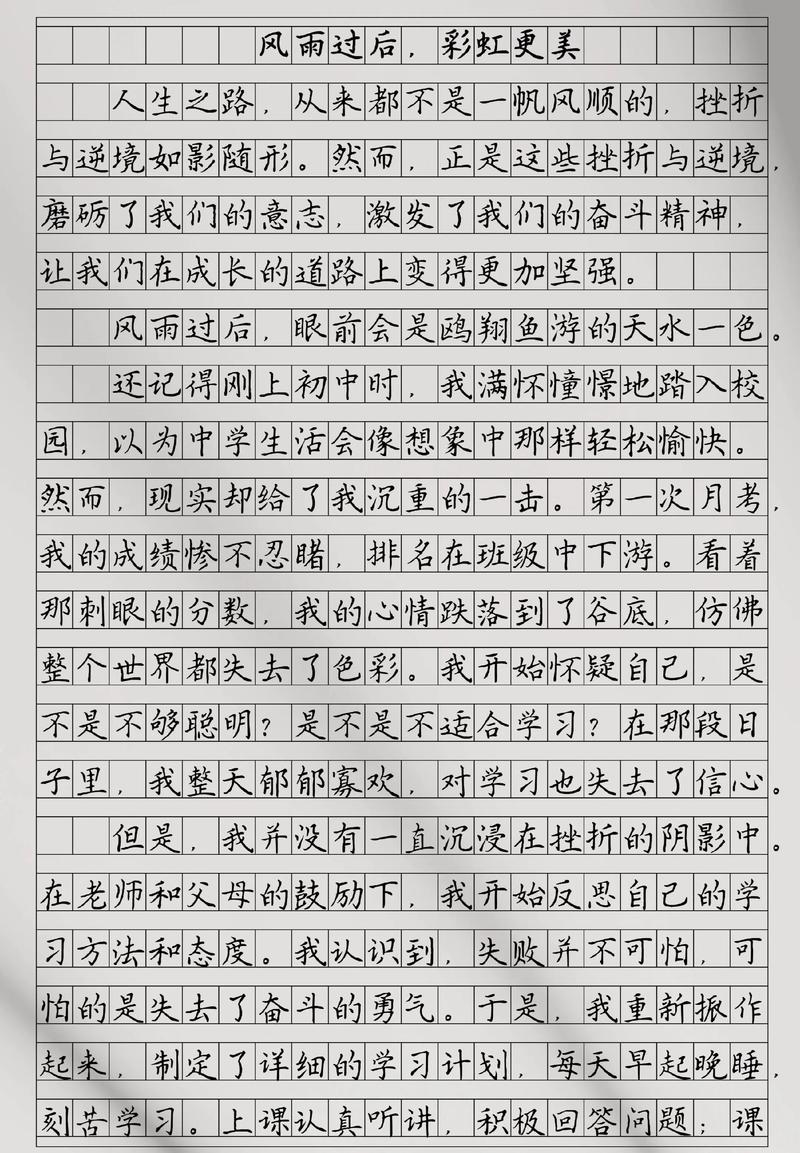 风雨过后，彩虹更美
人生之路，从来都不是一帆风顺的，挫折
与逆境如影随形。然而，正是这些挫折与逆境，
磨砺了我们的意志，激发了我们的奋斗精神，
让我们在成长的道路上变得更加坚强。
风雨过后，眼前会是鸥翔鱼游的天水一色。
还记得刚上初中时，我满怀憧憬地踏入校
园，以为中学生活会像想象中那样轻松愉快。
然而，现实却给了我沉重的一击。第一次月考，
我的成绩惨不忍睹，排名在班级中下游。看着
那刺眼的分数，我的心情跌落到了谷底，仿佛
整个世界都失去了色彩。我开始怀疑自己，是
不是不够聪明？是不是不适合学习？在那段日
子里，我整天郁郁寡欢，对学习也失去了信心。
但是，我并没有一直沉浸在挫折的阴影中。
在老师和父母的鼓励下，我开始反思自己的学
习方法和态度。我认识到，失败并不可怕，可
怕的是失去了奋斗的勇气。于是，我重新振作
起来，制定了详细的学习计划，每天早起晚睡，
刻苦学习。上课认真听讲，积极回答问题；课